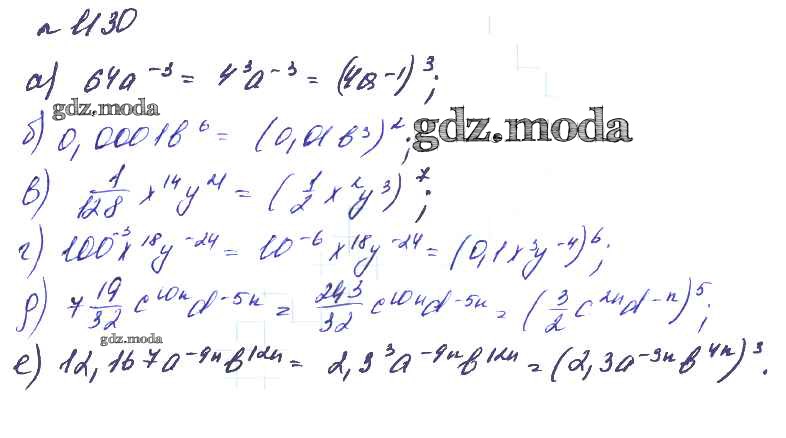 № 1130
а) 64a⁻³ = 4³a⁻³ = (4a⁻¹)³;
gdz.moda
б) 0,0001b⁶ = (0,01b³)²;
gdz.moda
в) 1/128 x¹⁴y²¹ = (1/2 x²y³)⁷;
г) 100⁻³x¹⁸y⁻²⁴ = 10⁻⁶x¹⁸y⁻²⁴ = (0,1x³y⁻⁴)⁶;
д) 7 19/32 c¹⁰ⁿd⁻⁵ⁿ = 243/32 c¹⁰ⁿd⁻⁵ⁿ = (3/2 c²ⁿd⁻ⁿ)⁵;
gdz.moda
е) 12,167a⁻⁹ⁿb¹²ⁿ = 2,3³a⁻⁹ⁿb¹²ⁿ = (2,3a⁻³ⁿb⁴ⁿ)³.